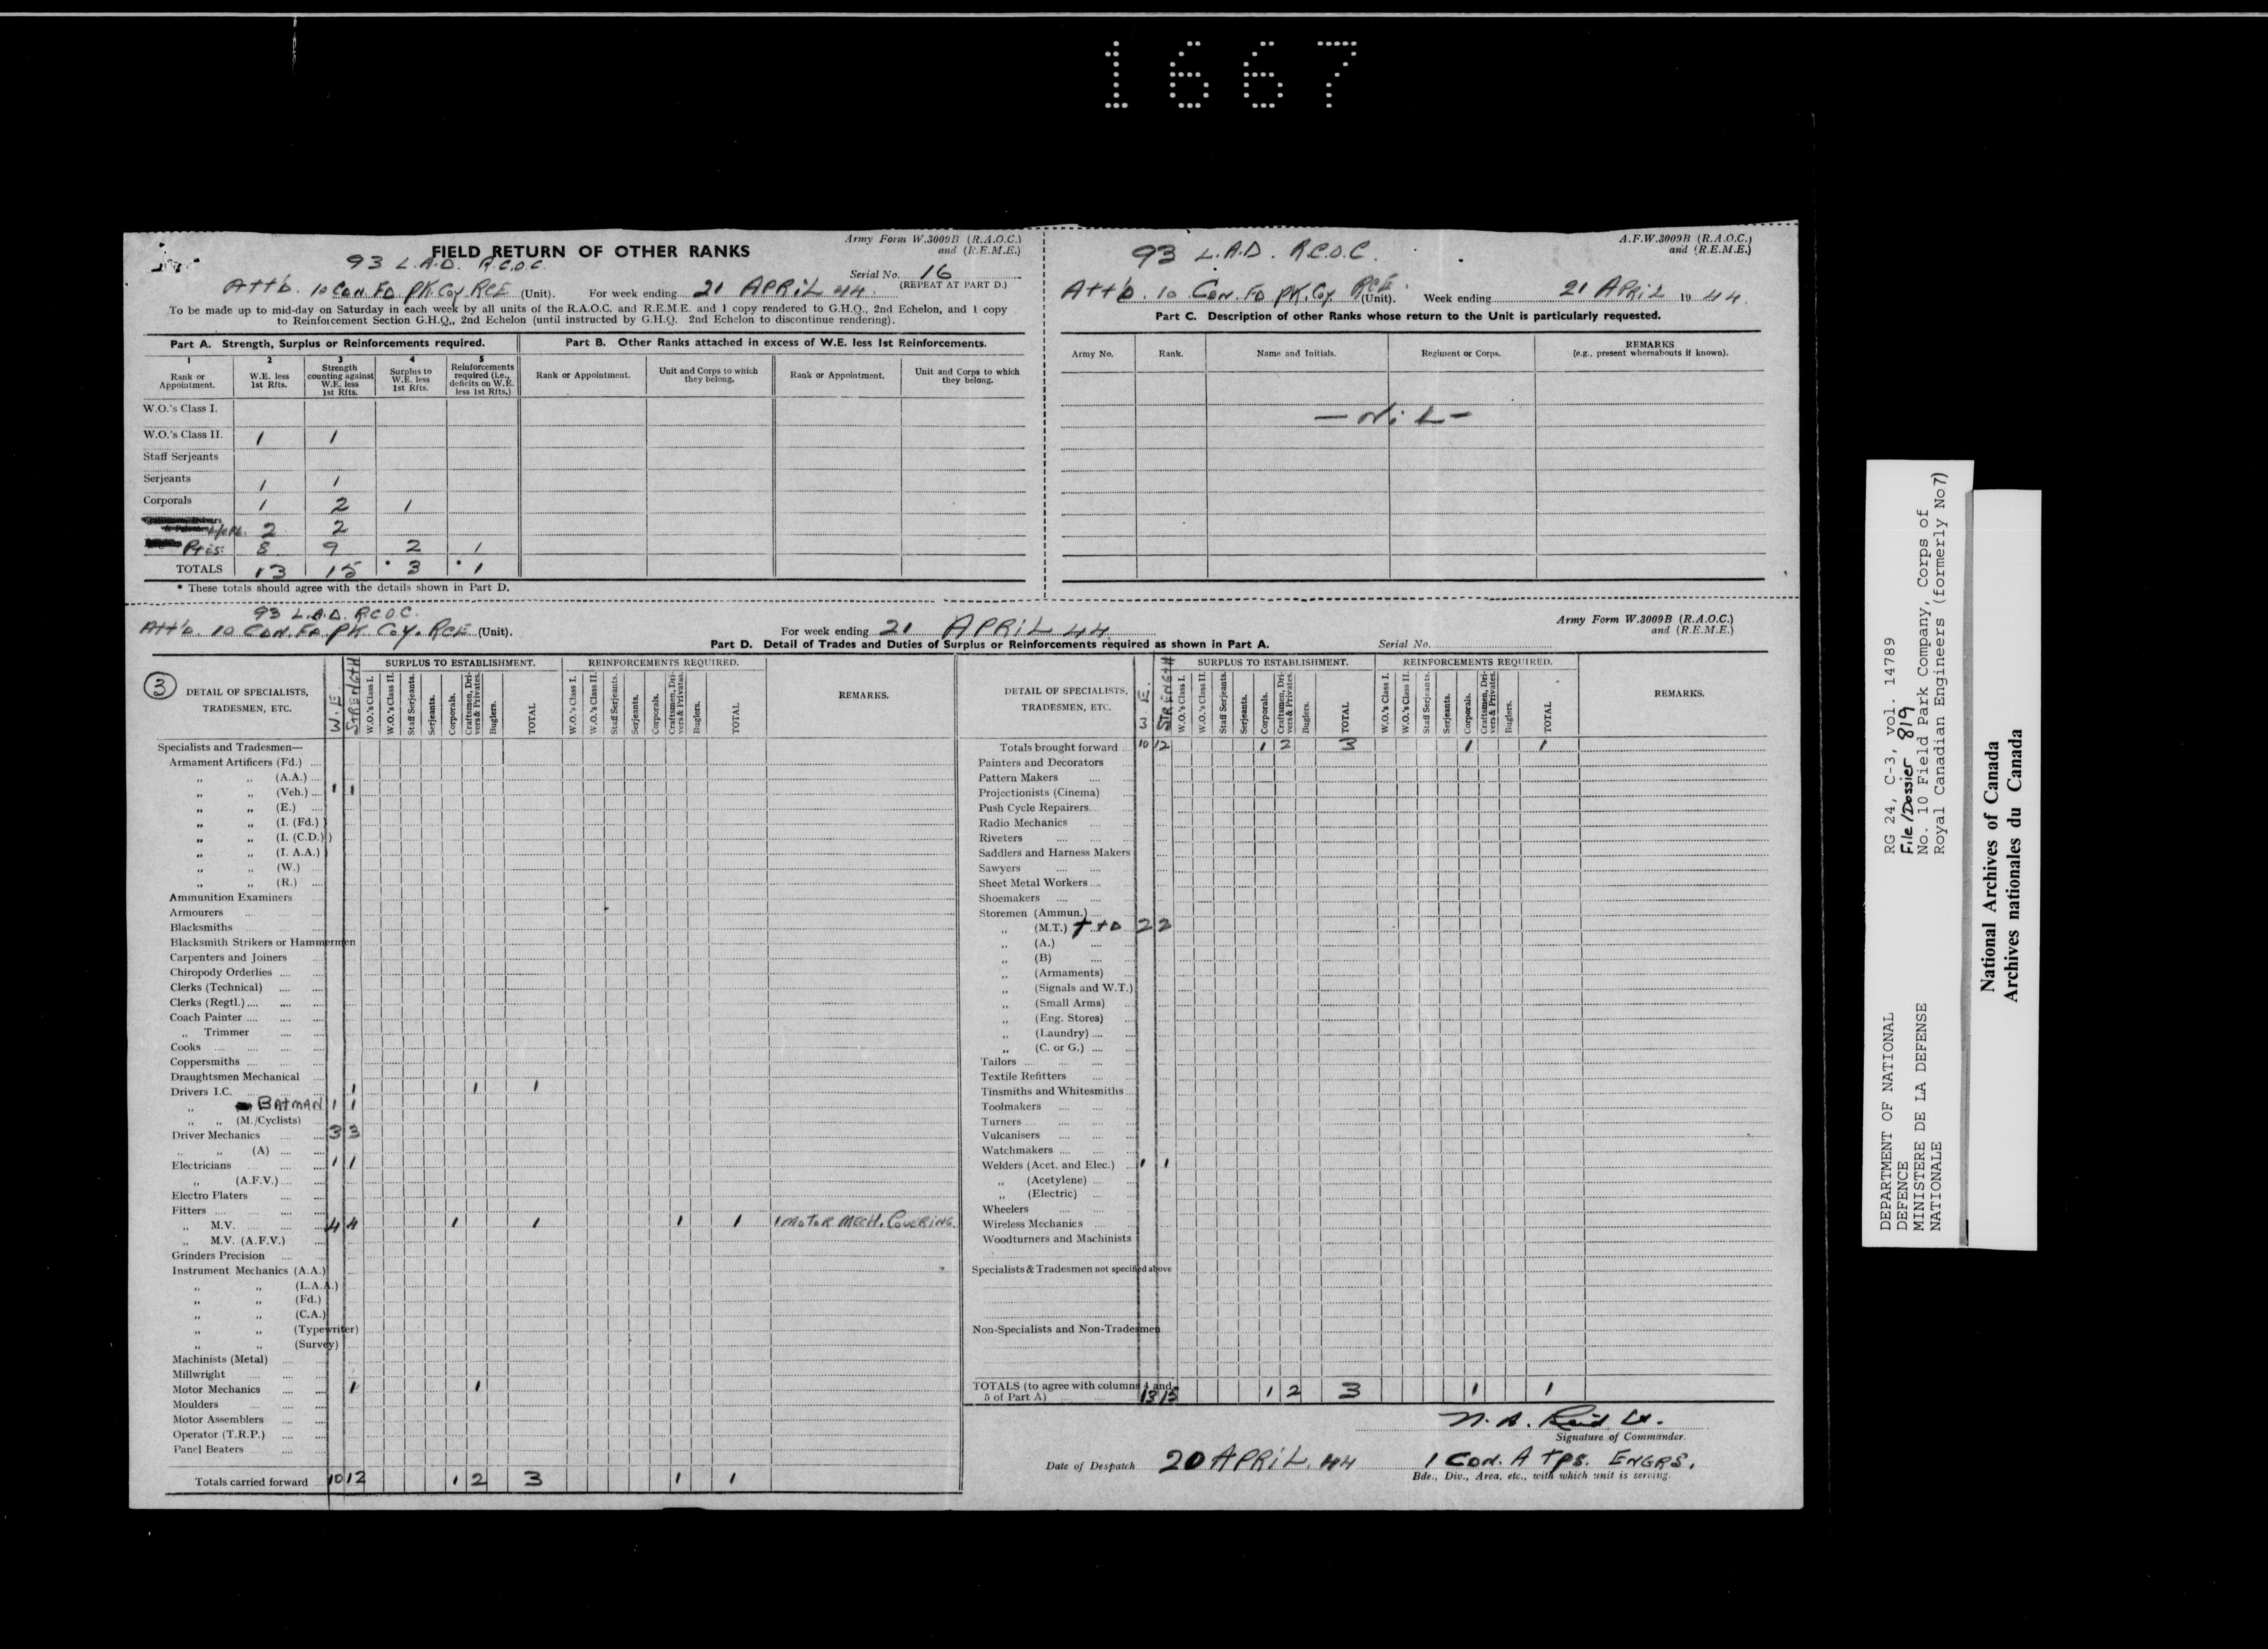 1667
FIELD RETURN OF OTHER RANKS
Army Form W.3009B (R.A.O.C.)
and (R.E.M.E.)
93 L.A.D. R.C.O.C.
Serial No. 16
(REPEAT AT PART D.)
Att'd. 10 Cdn. Fd. Pk. Coy RCE (Unit). For week ending 21 APRIL 44.
To be made up to mid-day on Saturday in each week by all units of the R.A.O.C. and R.E.M.E. and 1 copy rendered to G.H.Q., 2nd Echelon, and 1 copy
to Reinforcement Section G.H.Q., 2nd Echelon (until instructed by G.H.Q. 2nd Echelon to discontinue rendering).
Part A. Strength, Surplus or Reinforcements required.
1 2 3 4 5
Rank or Appointment. W.E. less 1st Rfts. Strength counting against W.E. less 1st Rfts. Surplus to W.E. less 1st Rfts. Reinforcements required (i.e., deficits on W.E. less 1st Rfts.)
W.O.'s Class I.
W.O.'s Class II. 1 1
Staff Serjeants
Serjeants 1 1
Corporals 1 2 1
2 2
Ptes. 8 9 2 1
TOTALS 13 15 * 3 * 1
* These totals should agree with the details shown in Part D.
Part B. Other Ranks attached in excess of W.E. less 1st Reinforcements.
Rank or Appointment. Unit and Corps to which they belong. Rank or Appointment. Unit and Corps to which they belong.
A.F.W.3009B (R.A.O.C.)
and (R.E.M.E.)
93 L.A.D. R.C.O.C.
Att'd. 10 Cdn. Fd. Pk. Coy RCE (Unit). Week ending 21 APRIL 1944.
Part C. Description of other Ranks whose return to the Unit is particularly requested.
Army No. Rank. Name and Initials. Regiment or Corps. REMARKS (e.g., present whereabouts if known).
— NiL —
93 L.A.D. RCOC.
Att'd. 10 CDN. FD. PK. COY. RCE (Unit). For week ending 21 APRIL 44
Army Form W.3009B (R.A.O.C.)
and (R.E.M.E.)
Part D. Detail of Trades and Duties of Surplus or Reinforcements required as shown in Part A. Serial No.
3
DETAIL OF SPECIALISTS, TRADESMEN, ETC. W.E. STRENGTH SURPLUS TO ESTABLISHMENT. REINFORCEMENTS REQUIRED. REMARKS.
W.O.'s Class I. W.O.'s Class II. Staff Serjeants. Serjeants. Corporals. Craftsmen, Drivers & Privates. Buglers. TOTAL W.O.'s Class I. W.O.'s Class II. Staff Serjeants. Serjeants. Corporals. Craftsmen, Drivers & Privates. Buglers. TOTAL
Specialists and Tradesmen—
Armament Artificers (Fd.)
„ „ (A.A.)
„ „ (Veh.) 1 1
„ „ (E.)
„ „ (I. (Fd.)
„ „ (I. (C.D.))
„ „ (I. A.A.)
„ „ (W.)
„ „ (R.)
Ammunition Examiners
Armourers
Blacksmiths
Blacksmith Strikers or Hammermen
Carpenters and Joiners
Chiropody Orderlies
Clerks (Technical)
Clerks (Regtl.)
Coach Painter
„ Trimmer
Cooks
Coppersmiths
Draughtsmen Mechanical
Drivers I.C. 1 1 1
„ BATMAN 1 1
„ „ (M./Cyclists)
Driver Mechanics 3 3
„ „ (A)
Electricians 1 1
„ (A.F.V.)
Electro Platers
Fitters
„ M.V. 4 4 1 1 1 1 1 MOTOR MECH. COVERING.
„ M.V. (A.F.V.)
Grinders Precision
Instrument Mechanics (A.A.)
„ „ (L.A.A.)
„ „ (Fd.)
„ „ (C.A.)
„ „ (Typewriter)
„ „ (Survey)
Machinists (Metal)
Millwright
Motor Mechanics 1 1
Moulders
Motor Assemblers
Operator (T.R.P.)
Panel Beaters
Totals carried forward 10 12 1 2 3 1 1
DETAIL OF SPECIALISTS, TRADESMEN, ETC. W.E. STRENGTH SURPLUS TO ESTABLISHMENT. REINFORCEMENTS REQUIRED. REMARKS.
W.O.'s Class I. W.O.'s Class II. Staff Serjeants. Serjeants. Corporals. Craftsmen, Drivers & Privates. Buglers. TOTAL W.O.'s Class I. W.O.'s Class II. Staff Serjeants. Serjeants. Corporals. Craftsmen, Drivers & Privates. Buglers. TOTAL
Totals brought forward 10 12 1 2 3 1 1
Painters and Decorators
Pattern Makers
Projectionists (Cinema)
Push Cycle Repairers
Radio Mechanics
Riveters
Saddlers and Harness Makers
Sawyers
Sheet Metal Workers
Shoemakers
Storemen (Ammun.)
„ (M.T.) 2 2
„ (A.)
„ (B)
„ (Armaments)
„ (Signals and W.T.)
„ (Small Arms)
„ (Eng. Stores)
„ (Laundry)
„ (C. or G.)
Tailors
Textile Refitters
Tinsmiths and Whitesmiths
Toolmakers
Turners
Vulcanisers
Watchmakers
Welders (Acet. and Elec.) 1 1
„ (Acetylene)
„ (Electric)
Wheelers
Wireless Mechanics
Woodturners and Machinists
Specialists & Tradesmen not specified above
Non-Specialists and Non-Tradesmen
TOTALS (to agree with columns 4 and
5 of Part A) 13 15 1 2 3 1 1
Signature of Commander.
Date of Despatch 20 APRIL 44 1 Cdn. A Tps. ENGRS.
Bde., Div., Area, etc., with which unit is serving.
DEPARTMENT OF NATIONAL
DEFENCE
MINISTERE DE LA DEFENSE
NATIONALE
RG 24, C-3, vol. 14789
File/Dossier 819
No. 10 Field Park Company, Corps of
Royal Canadian Engineers (formerly No7)
National Archives of Canada
Archives nationales du Canada